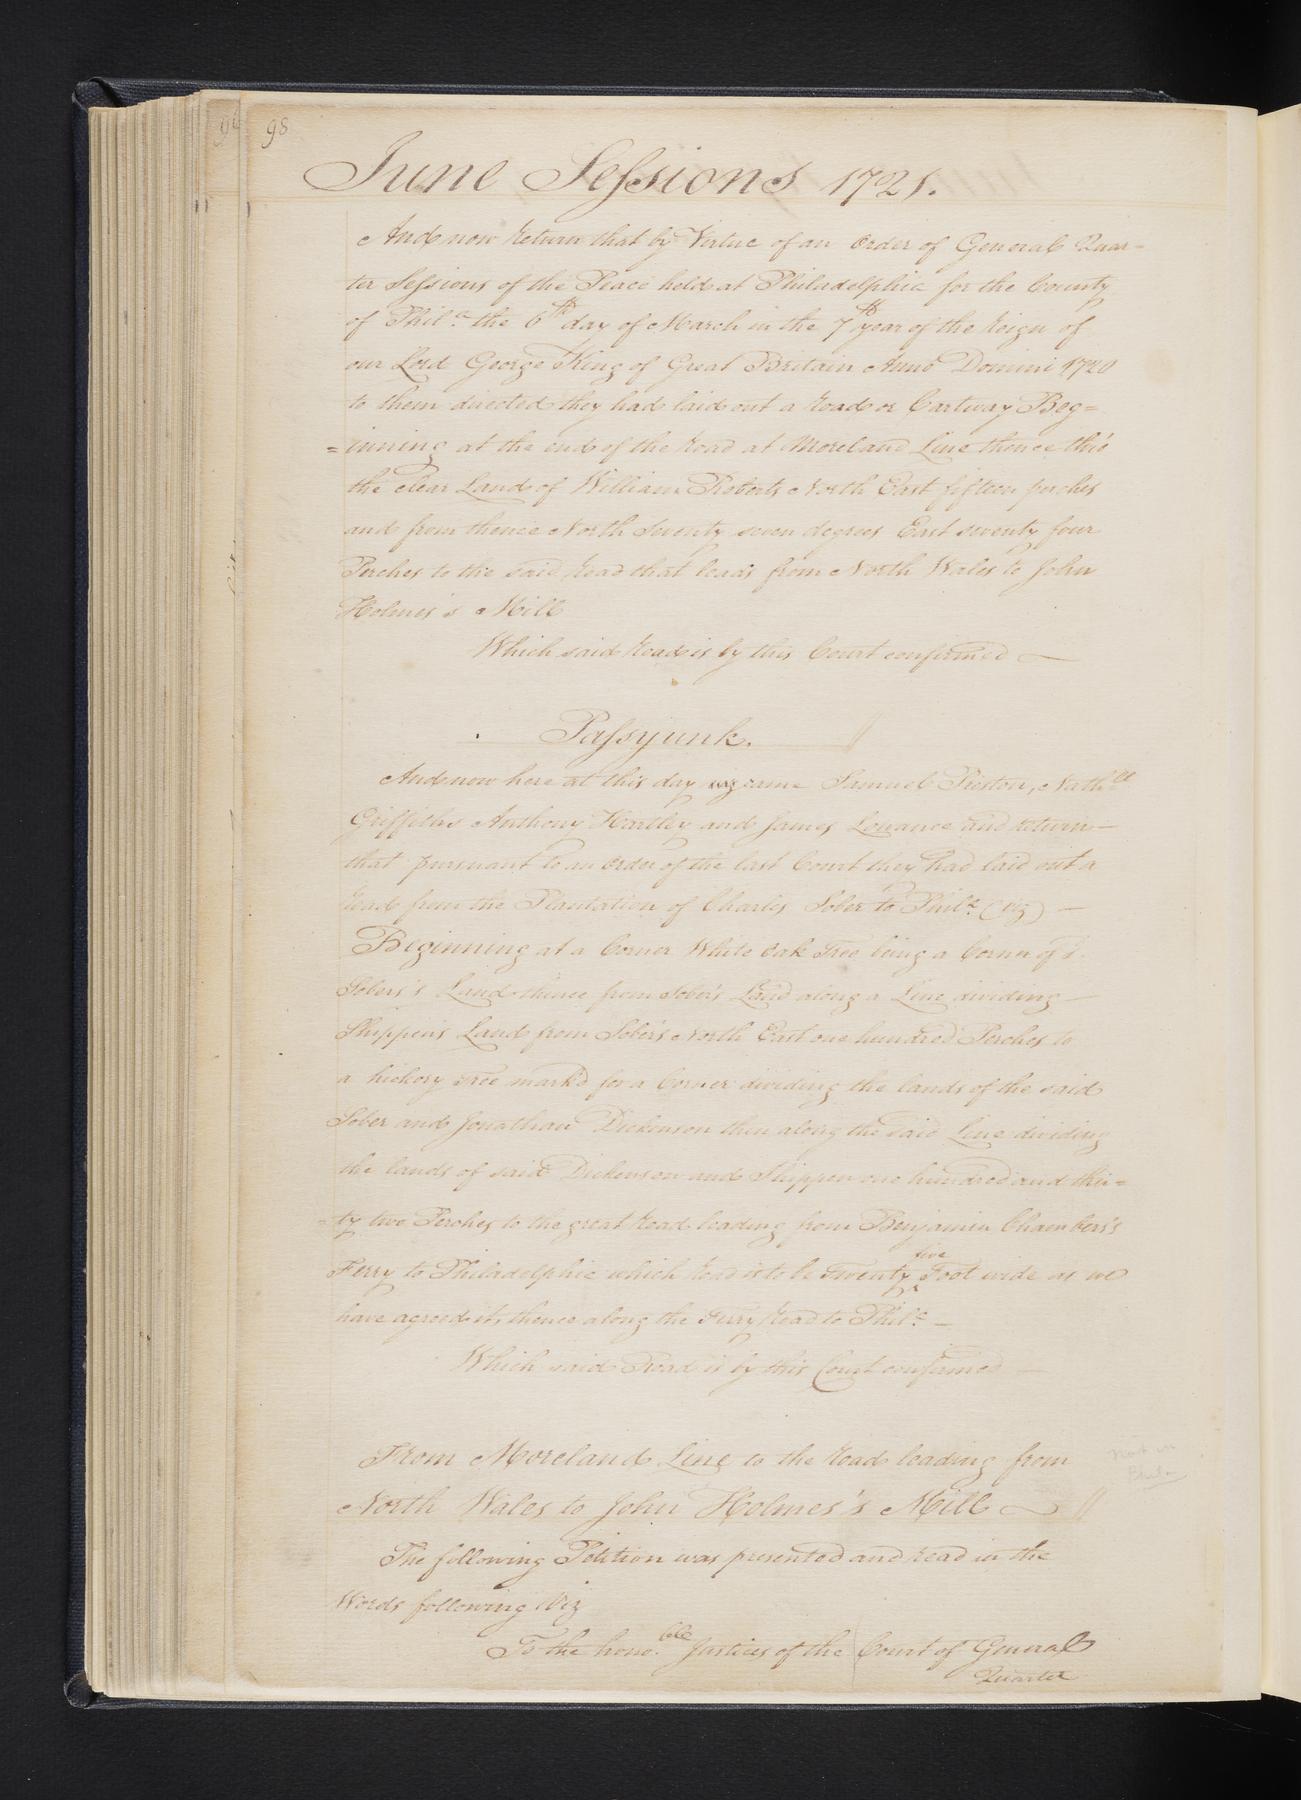 98
June Sessions 1721.
And now return that by Virtue of an order of General Quar-
ter Sessions of the Peace held at Philadelphia for the County
of Phila. the 6th day of March in the 7th year of the Reign of
our Lord George King of Great Britain Anno Domini 1720
to them directed they had laid out a road or Cartway Beg=
=inning at the end of the road at Moreland Line thence thro'
the clear Land of William Roberts North East fifteen perches
and from thence North Seventy seven degrees East seventy four
Perches to the said road that leads from North Wales to John
Holmes's Mill
Which said road is by this Court confirmed
Passyunk.
And now here at this day came Samuel Preston, Nathll
Griffiths Anthony Hartley and James Lowance and return
that pursuant to an order of the last Court they had laid out a
road from the Plantation of Charles Sober to Phila. (viz) —
Beginning at a Corner White oak Tree being a Corner of s.
Sobers's Land thence from Sober's Land along a Line dividing —
Shippen's Land from Sober's North East one hundred Perches to
a hickory Tree mark'd for a Corner dividing the lands of the said
Sober and Jonathan Dickenson then along the said Line dividing
the lands of said Dickenson and Shippen one hundred and thir=
=ty two Perches to the great road leading from Benjamin Chambers's
five
Ferry to Philadelphia which road is to be Twenty ‸ Foot wide as we
have agreed it, thence along the Ferry road to Phila. —
Which said Road is by this Court confirmed —
From Moreland Line to the road leading from
North Wales to John Holmes's Mill
Not in
Phila
The following Petition was presented and read in the
Words following Viz
To the hono.ble Justices of the Court of General
Quarter